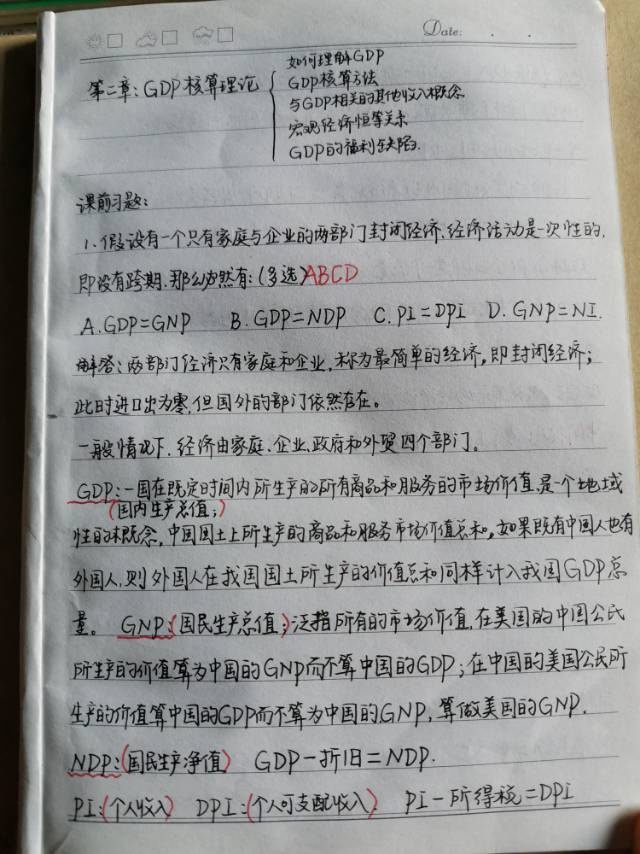 Date: . .
如何理解GDP
第二章:GDP核算理论 GDP核算方法
与GDP相关的其他收入概念
宏观经济恒等关系
GDP的福利与缺陷.
课前习题:
1.假设有一个只有家庭与企业的两部门封闭经济.经济活动是一次性的,
即没有跨期.那么必然有:(多选)ABCD
A.GDP=GNP B.GDP=NDP C.PI=DPI D.GNP=NI.
解答:两部门经济只有家庭和企业,称为最简单的经济,即封闭经济;
此时进口出为零,但国外的部门依然存在。
一般情况下.经济由家庭.企业.政府和外贸四个部门。
GDP:一国在既定时间内所生产的所有商品和服务的市场价值.是一个地域
(国内生产总值;)
性的概念,中国国土上所生产的商品和服务市场价值总和,如果既有中国人也有
外国人,则外国人在我国国土所生产的价值总和同样计入我国GDP总
量。 GNP:(国民生产总值;)泛指所有的市场价值.在美国的中国公民
所生产的价值算为中国的GNP而不算中国的GDP;在中国的美国公民所
生产的价值算中国的GDP而不算为中国的GNP,算做美国的GNP.
NDP:(国民生产净值) GDP-折旧=NDP.
PI:(个人收入) DPI:(个人可支配收入) PI-所得税=DPI